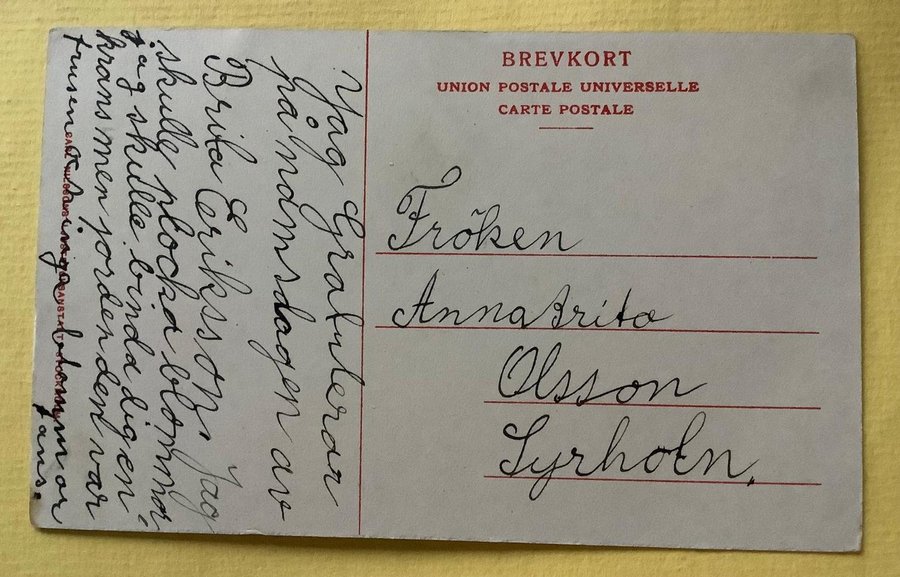 BREVKORT
UNION POSTALE UNIVERSELLE
CARTE POSTALE
Fröken
Anna Brita
Olsson
Syrholn.
Jag Gratulerar
på namsdagen av
Brita Eriksson, Jag
skulle plocka blommor
jag skulle binda dig en
krans men jorden den var
frusen och inga blommor
fans.